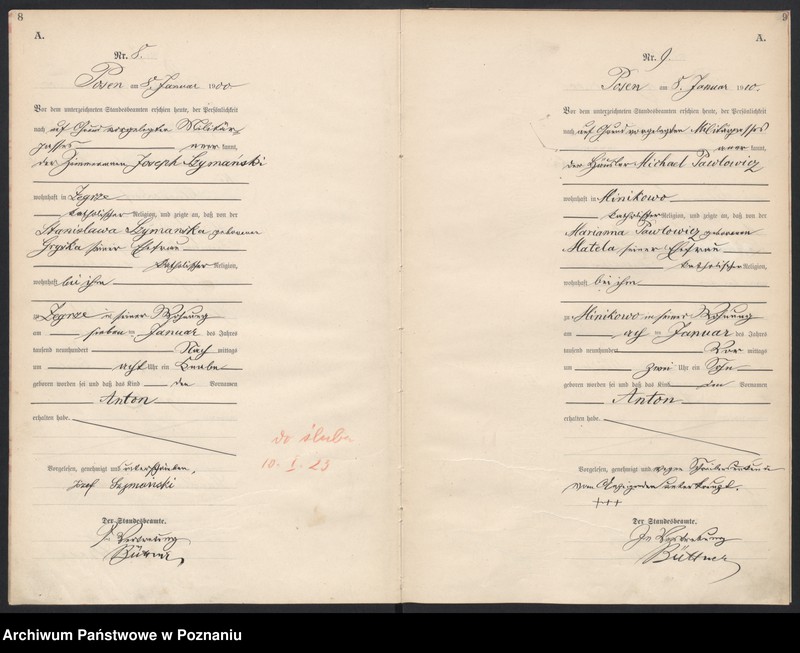 8
A.
Nr. 8.
Posen am 8. Januar 1900
Vor dem unterzeichneten Standesbeamten erschien heute, der Persönlichkeit
nach auf Grund vorgelegten Militär
passes kannt,
der Zimmermann Joseph Szymański
wohnhaft in Zegrze
katholischer Religion, und zeigte an, daß von der
Stanislawa Szymanska geborenen
seiner Ehefrau
katholischer Religion,
wohnhaft bei ihm
zu Zegrze in seiner Wohnung
am sieben ten Januar des Jahres
tausend neunhundert Nach mittags
um acht Uhr ein Knabe
geboren worden sei und daß das Kind den Vornamen
Anton
erhalten habe.
do ślubu
10. I. 25
Vorgelesen, genehmigt und unterschrieben.
Josef Szymański
Der Standesbeamte.
In Vertretung
Büttner
9
A.
Nr. 9.
Posen am 8. Januar 1900.
Vor dem unterzeichneten Standesbeamten erschien heute, der Persönlichkeit
nach auf Grund vorgelegten Militärpasses
aner kannt,
der Häusler Michael Pawlowicz
wohnhaft in Minikowo
katholischer Religion, und zeigte an, daß von der
Marianna Pawlowicz geborenen
Matela seiner Ehefrau
katholischer Religion,
wohnhaft bei ihm
zu Minikowo in seiner Wohnung
am ten Januar des Jahres
tausend neunhundert Vor mittags
um zwei Uhr ein Sohn
geboren worden sei und daß das Kind den Vornamen
Anton
erhalten habe.
Vorgelesen, genehmigt und wegen
vom Anzeigenden unterkreuzt.
+++
Der Standesbeamte.
In Vertretung
Büttner
Archiwum Państwowe w Poznaniu